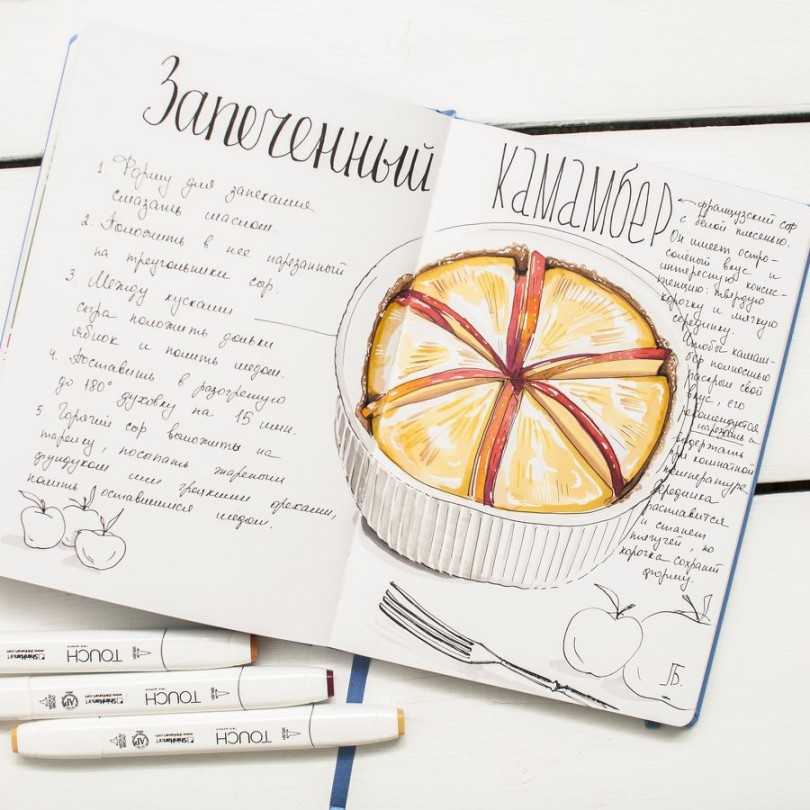 Запеченный
1. Форму для запекания
смазать маслом.
2. Положить в неё нарезанный
на треугольники сыр.
3. Между кусками
сыра положить дольки
яблок и полить медом.
4. Поставить в разогретую
до 180° духовку на 15 мин.
5 Горячий сыр выложить на
тарелку, посыпать жареным
фундуком или грецкими орехами,
полить оставшимся медом.
камамбер
французский сыр
с белой плесенью.
Он имеет остро-
солёный вкус и
интересную консис-
тенцию: твёрдую
корочку и мягкую
серединку.
Чтобы камам-
бер полностью
раскрыл свой
вкус, его
рекомендуется
нарезать и
подержать
при комнатной
температуре,
серединка
расплавится
и станет
тягучей, но
корочка сохранит
форму.
ЛБ.
ShinHanart TOUCH
ShinHanart TOUCH
ShinHanart TOUCH